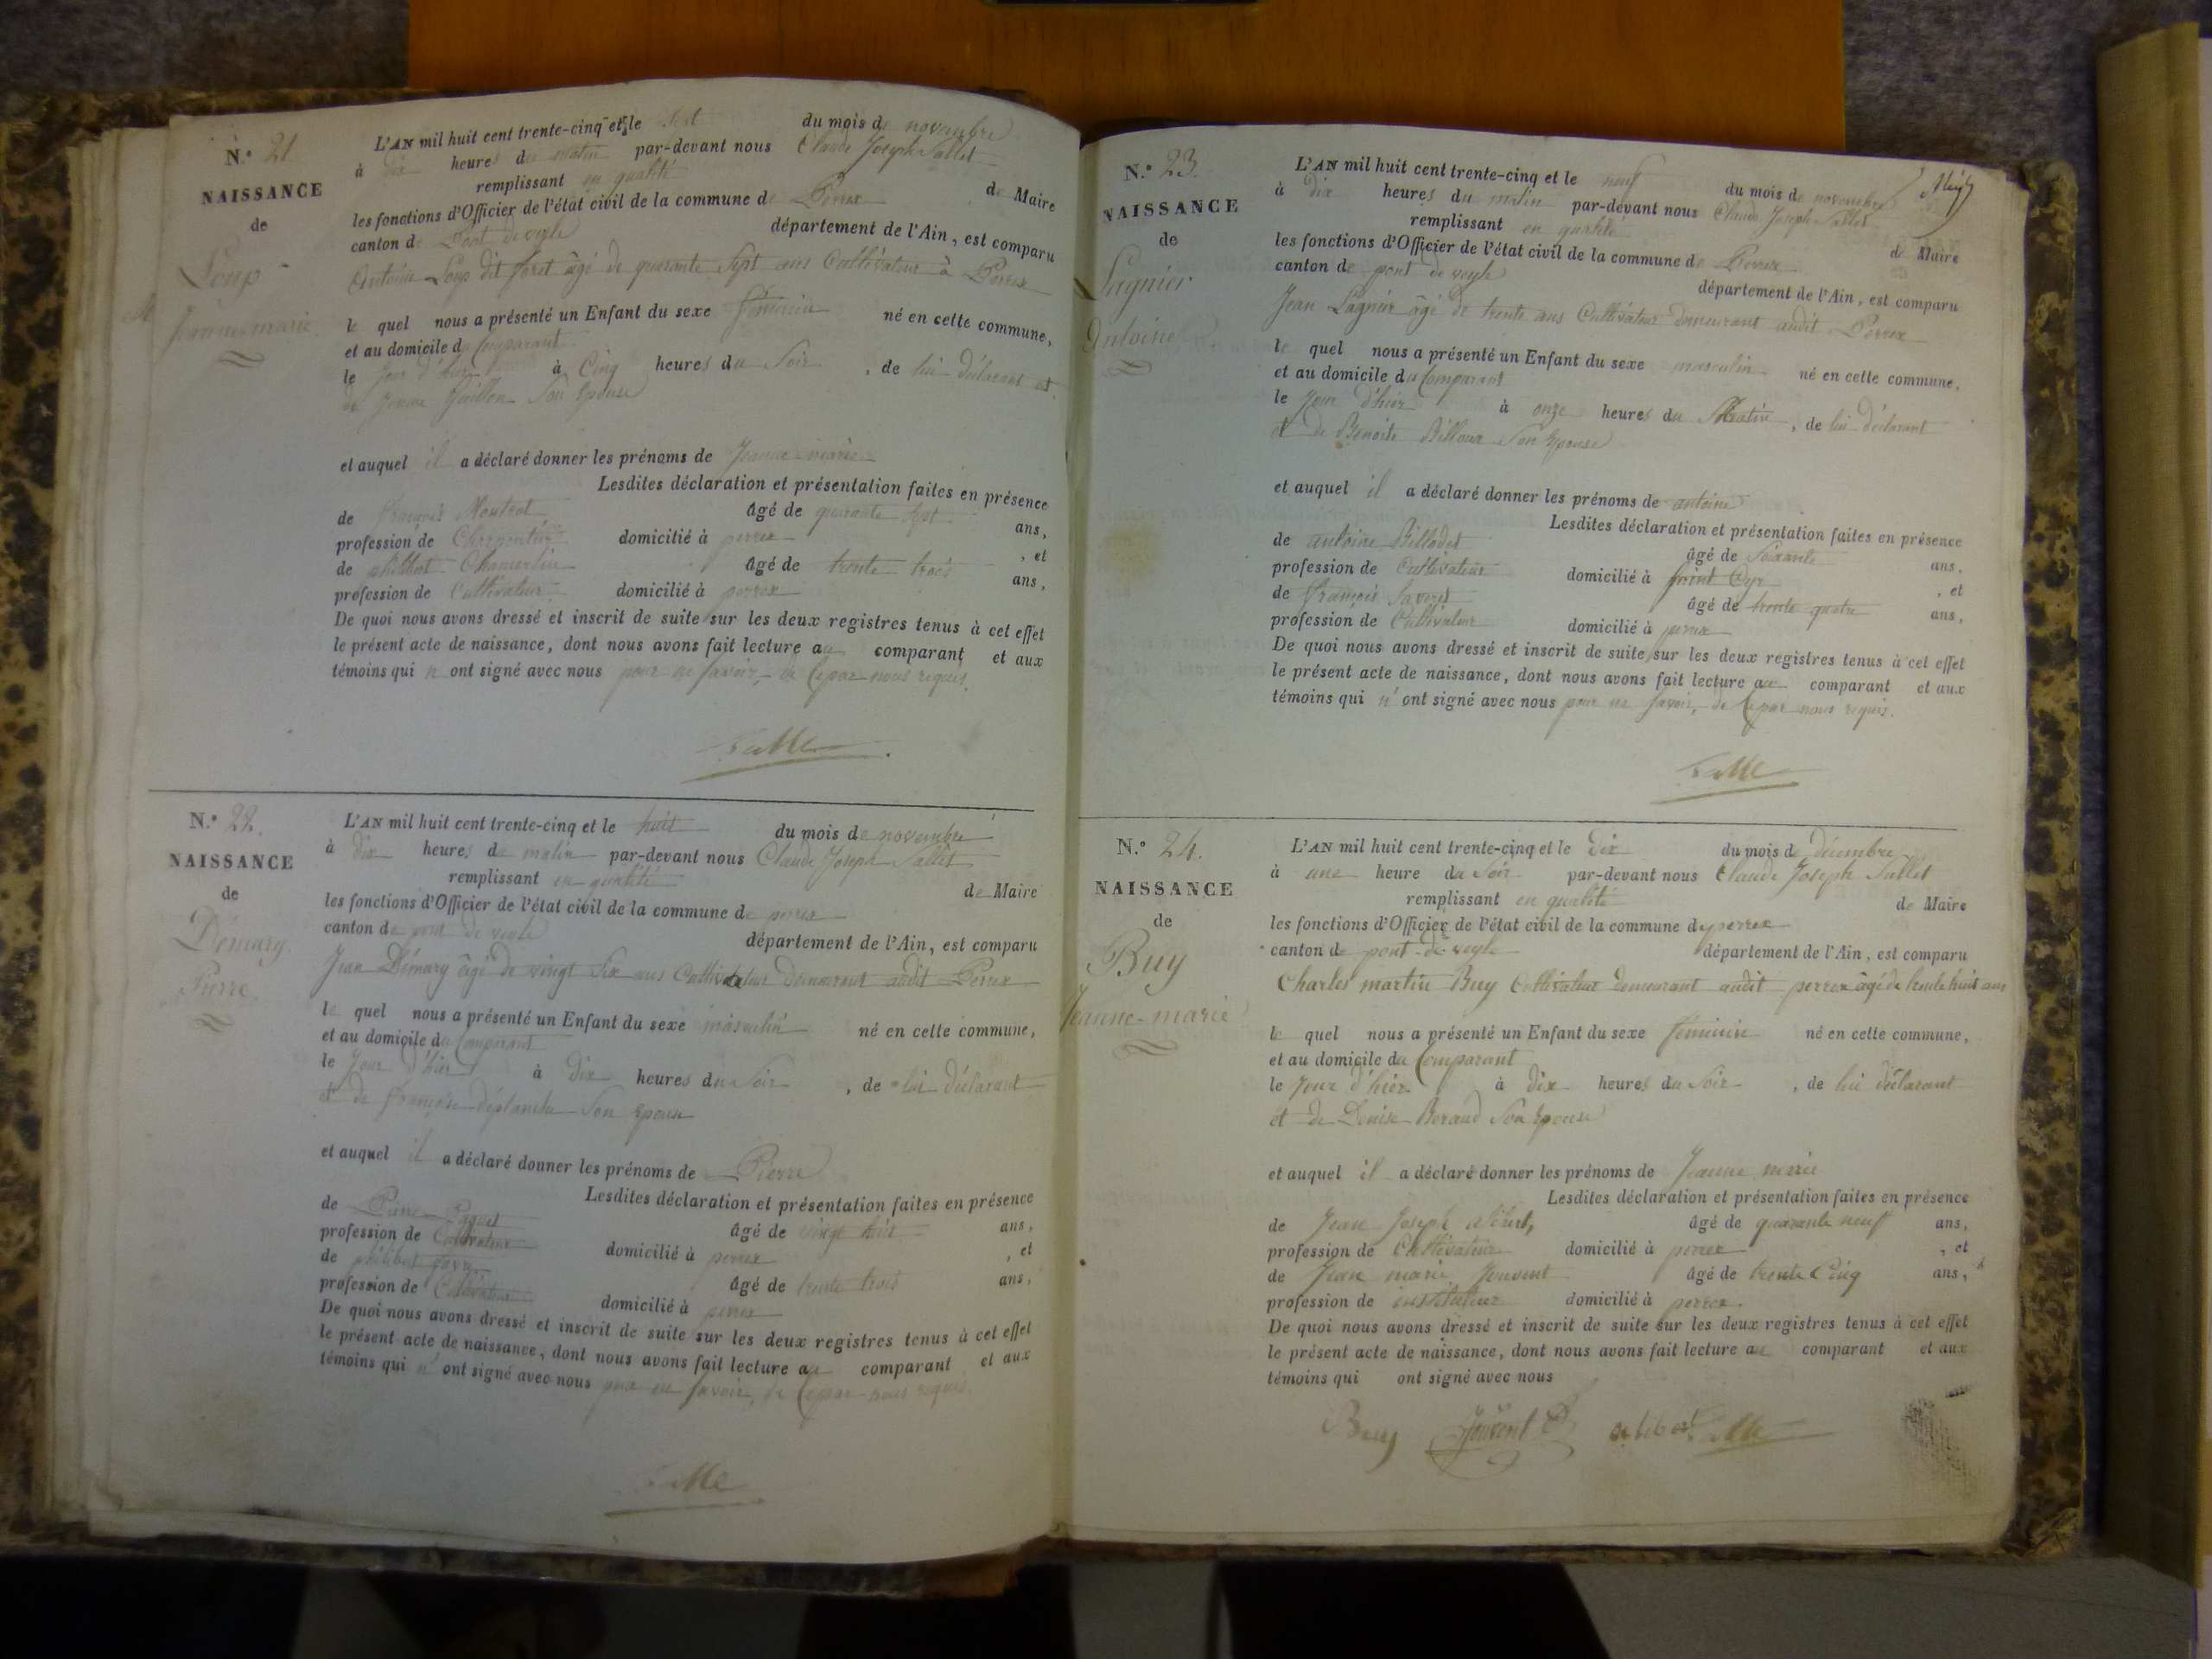 N.° 21
NAISSANCE
de
Loup
Jeanne-marie
L'AN mil huit cent trente-cinq et le sept du mois de novembre
à dix heures du matin par-devant nous Claude Joseph Sallet
remplissant en qualité de Maire
les fonctions d'Officier de l'état civil de la commune de Perrex
canton de Pont de veyle département de l'Ain, est comparu
Antoine Loup dit foret âgé de quarante sept ans Cultivateur à Perrex
le quel nous a présenté un Enfant du sexe féminin né en cette commune,
et au domicile du Comparant
le Jour d'hier à Cinq heures du Soir, de lui déclarant et
de Jeanne Son Epouse
et auquel il a déclaré donner les prénoms de Jeanne-marie
Lesdites déclaration et présentation faites en présence
de françois Montrot âgé de quarante sept ans,
profession de Charpentier domicilié à perrex, et
de philibert Chamerlin âgé de trente trois ans,
profession de Cultivateur domicilié à perrex
De quoi nous avons dressé et inscrit de suite sur les deux registres tenus à cet effet
le présent acte de naissance, dont nous avons fait lecture au comparant et aux
témoins qui n'ont signé avec nous pour ne savoir, de Ce par nous requis.
Sallet
N.° 22.
NAISSANCE
de
Démary
Pierre
L'AN mil huit cent trente-cinq et le huit du mois de novembre
à dix heures de matin par-devant nous Claude Joseph Sallet
remplissant en qualité de Maire
les fonctions d'Officier de l'état civil de la commune de perrex
canton de pont de veyle département de l'Ain, est comparu
Jean Démary âgé de vingt Six ans Cultivateur demeurant audit Perrex
le quel nous a présenté un Enfant du sexe masculin né en cette commune,
et au domicile du Comparant
le Jour d'hier à dix heures du Soir, de lui déclarant
et de françoise déplanche Son Epouse
et auquel il a déclaré donner les prénoms de Pierre
Lesdites déclaration et présentation faites en présence
de Pierre âgé de vingt huit ans,
profession de Cultivateur domicilié à perrex, et
de philibert âgé de trente trois ans,
profession de Cultivateur domicilié à perrex
De quoi nous avons dressé et inscrit de suite sur les deux registres tenus à cet effet
le présent acte de naissance, dont nous avons fait lecture au comparant et aux
témoins qui n'ont signé avec nous pour ne savoir, de Ce par nous requis.
Sallet
N.° 23.
NAISSANCE
de
Lagnier
Antoine
L'AN mil huit cent trente-cinq et le neuf du mois de novembre
à dix heures du matin par-devant nous Claude Joseph Sallet
remplissant en qualité de Maire
les fonctions d'Officier de l'état civil de la commune de Perrex
canton de pont de veyle département de l'Ain, est comparu
Jean Lagnier âgé de trente ans Cultivateur demeurant audit Perrex
le quel nous a présenté un Enfant du sexe masculin né en cette commune,
et au domicile du Comparant
le Jour d'hier à onze heures du Matin, de lui déclarant
et de Benoite Billoux Son Epouse
et auquel il a déclaré donner les prénoms de antoine
Lesdites déclaration et présentation faites en présence
de antoine Billoudet âgé de Soixante ans,
profession de Cultivateur domicilié à Saint Cyr, et
de françois âgé de trente quatre ans,
profession de Cultivateur domicilié à perrex
De quoi nous avons dressé et inscrit de suite sur les deux registres tenus à cet effet
le présent acte de naissance, dont nous avons fait lecture au comparant et aux
témoins qui n'ont signé avec nous pour ne savoir, de Ce par nous requis.
Sallet
N.° 24.
NAISSANCE
de
Buy
Jeanne-marie
L'AN mil huit cent trente-cinq et le Dix du mois de décembre
à une heure du Soir par-devant nous Claude Joseph Sallet
remplissant en qualité de Maire
les fonctions d'Officier de l'état civil de la commune de perrex
canton de pont-de-veyle département de l'Ain, est comparu
Charles martin Buy Cultivateur demeurant audit perrex âgé de trente huit ans
le quel nous a présenté un Enfant du sexe féminin né en cette commune,
et au domicile du Comparant
le Jour d'hier à dix heures du Soir, de lui déclarant
et de Denise Beraud Son Epouse
et auquel il a déclaré donner les prénoms de Jeanne marie
Lesdites déclaration et présentation faites en présence
de Jean Joseph âgé de quarante neuf ans,
profession de Cultivateur domicilié à perrex, et
de Jean marie Jouvent âgé de trente Cinq ans,
profession de instituteur domicilié à perrex
De quoi nous avons dressé et inscrit de suite sur les deux registres tenus à cet effet
le présent acte de naissance, dont nous avons fait lecture au comparant et aux
témoins qui ont signé avec nous
Buy Jouvent Sallet